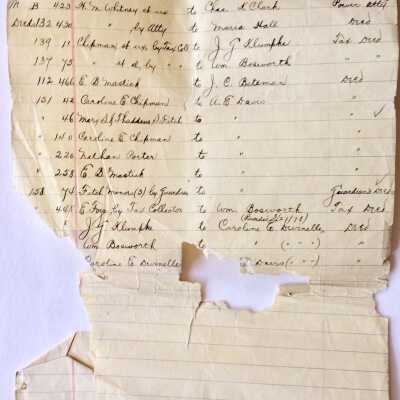 B 423 H. M. Whitney et ux to Chas. H. Clark Power atty
Deeds 132 430 " by Atty to Maria Hall Deed
139 11 Chipman et ux by Tax Col to J. G. Klumpke Tax Deed
137 75 " et al by " " to Wm Bosworth " "
112 466 E B Mastick to J. C. Bateman Deed
151 42 Caroline E Chipman to A. E. Davis "
" 46 Mary S & Thaddeus D. Fitch to " "
" 140 Caroline E Chipman to " "
" 220 Nathan Porter to " "
" 258 E B Mastick to " "
158 74 Fitch Minors (3) by Guardian to " Guardians Deed
448 E Foye by Tax Collector to Wm Bosworth Tax Deed
J. G. Klumpke to Caroline E Dwinelle Deed
Wm Bosworth to " (" " ") "
Caroline E Dwinelle E Davis (" " ") "